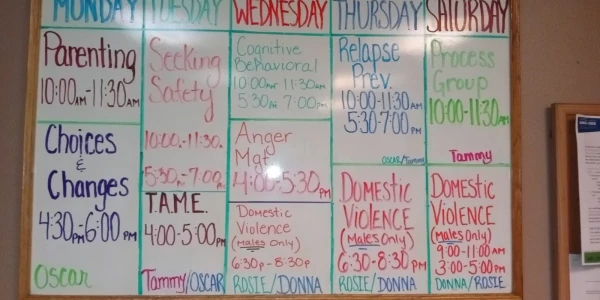 MONDAY
Parenting
10:00AM-11:30AM
Choices
&
Changes
4:30PM-6:00PM
Oscar
TUESDAY
Seeking
Safety
10:00-11:30
5:30-7:00
T.A.M.E.
4:00-5:00PM
Tammy/OSCAR
WEDNESDAY
Cognitive
Behavioral
10:00AM 11:30AM
5:30 7:00PM
Anger
Mgt
4:00-5:30PM
Domestic
Violence
(Males Only)
6:30p-8:30p
ROSIE/DONNA
THURSDAY
Relapse
Prev.
10:00-11:30AM
5:30-7:00PM
OSCAR/Tammy
DOMESTIC
VIOLENCE
(Males Only)
6:30-8:30PM
ROSIE/DONNA
SATURDAY
Process
Group
10:00-11:30AM
Tammy
DOMESTIC
VIOLENCE
(MALES ONLY)
9:00-11:00AM
3:00-5:00PM
DONNA/ROSIE